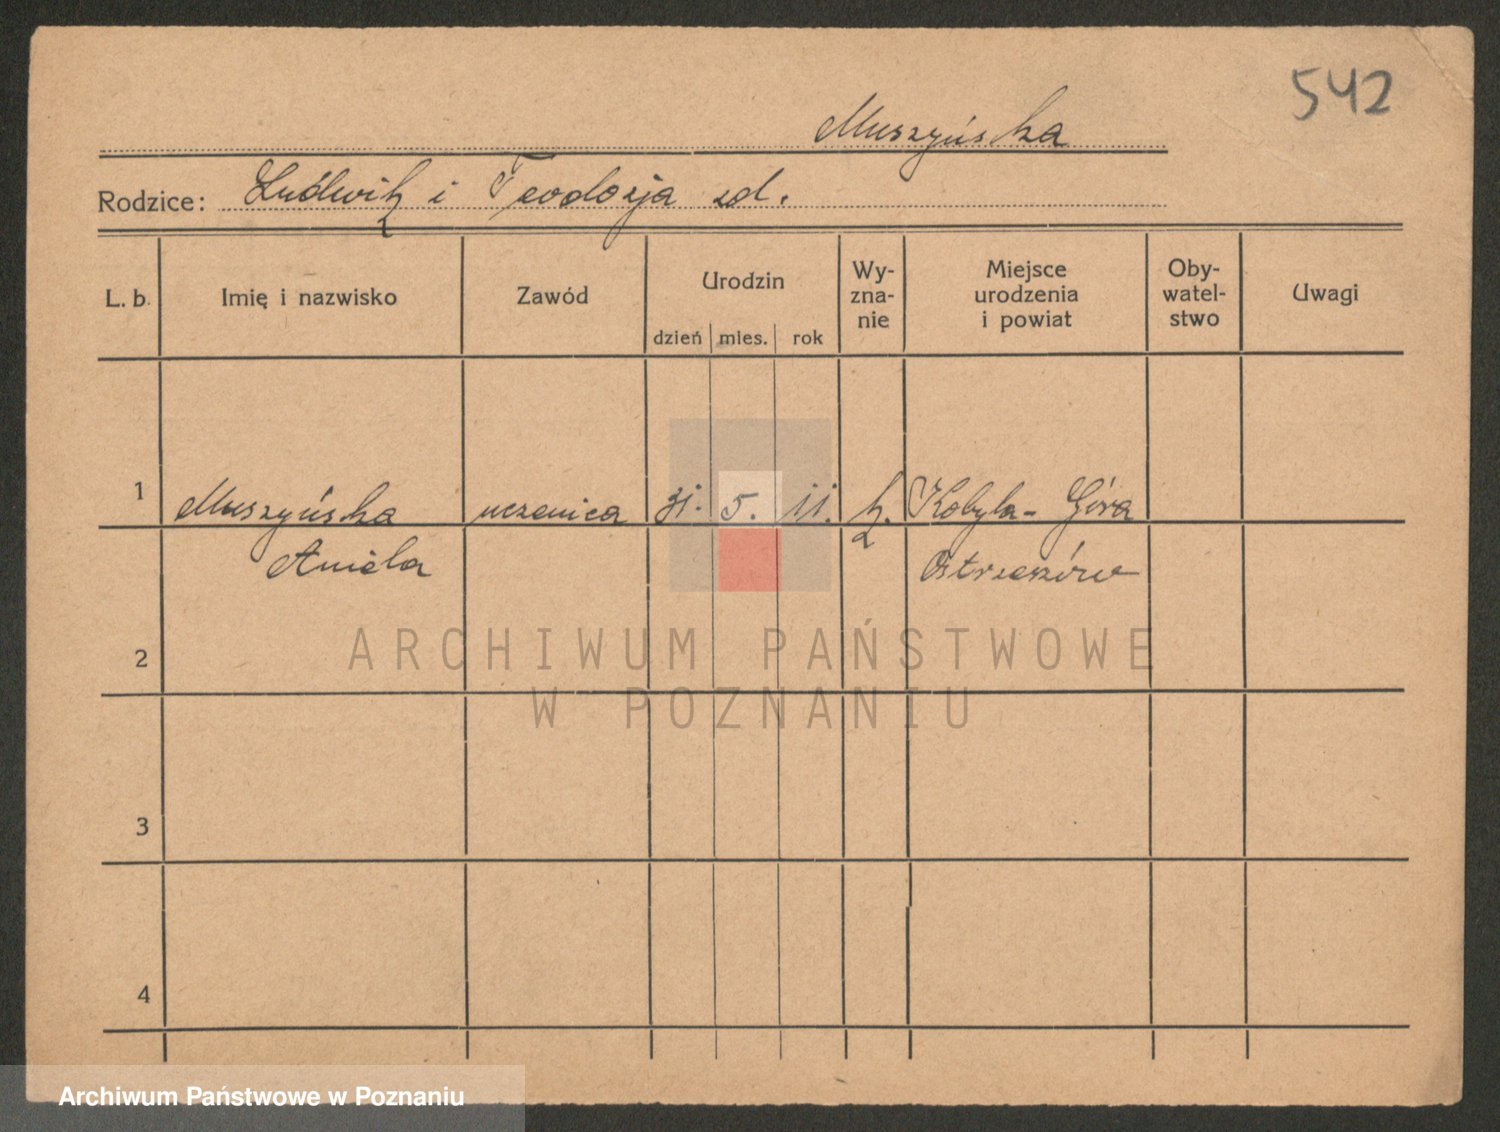 542
Muszyńska
Rodzice: Ludwik i Teodozja zd.
L. b. Imię i nazwisko Zawód Urodzin Wy- Miejsce Oby- Uwagi
zna- urodzenia watel-
nie i powiat stwo
dzień mies. rok
1 Muszyńska uczenica 31. 5. 11. k. Kobyla-Góra
Aniela Ostrzeszów
2
ARCHIWUM PAŃSTWOWE
W POZNANIU
3
4
Archiwum Państwowe w Poznaniu